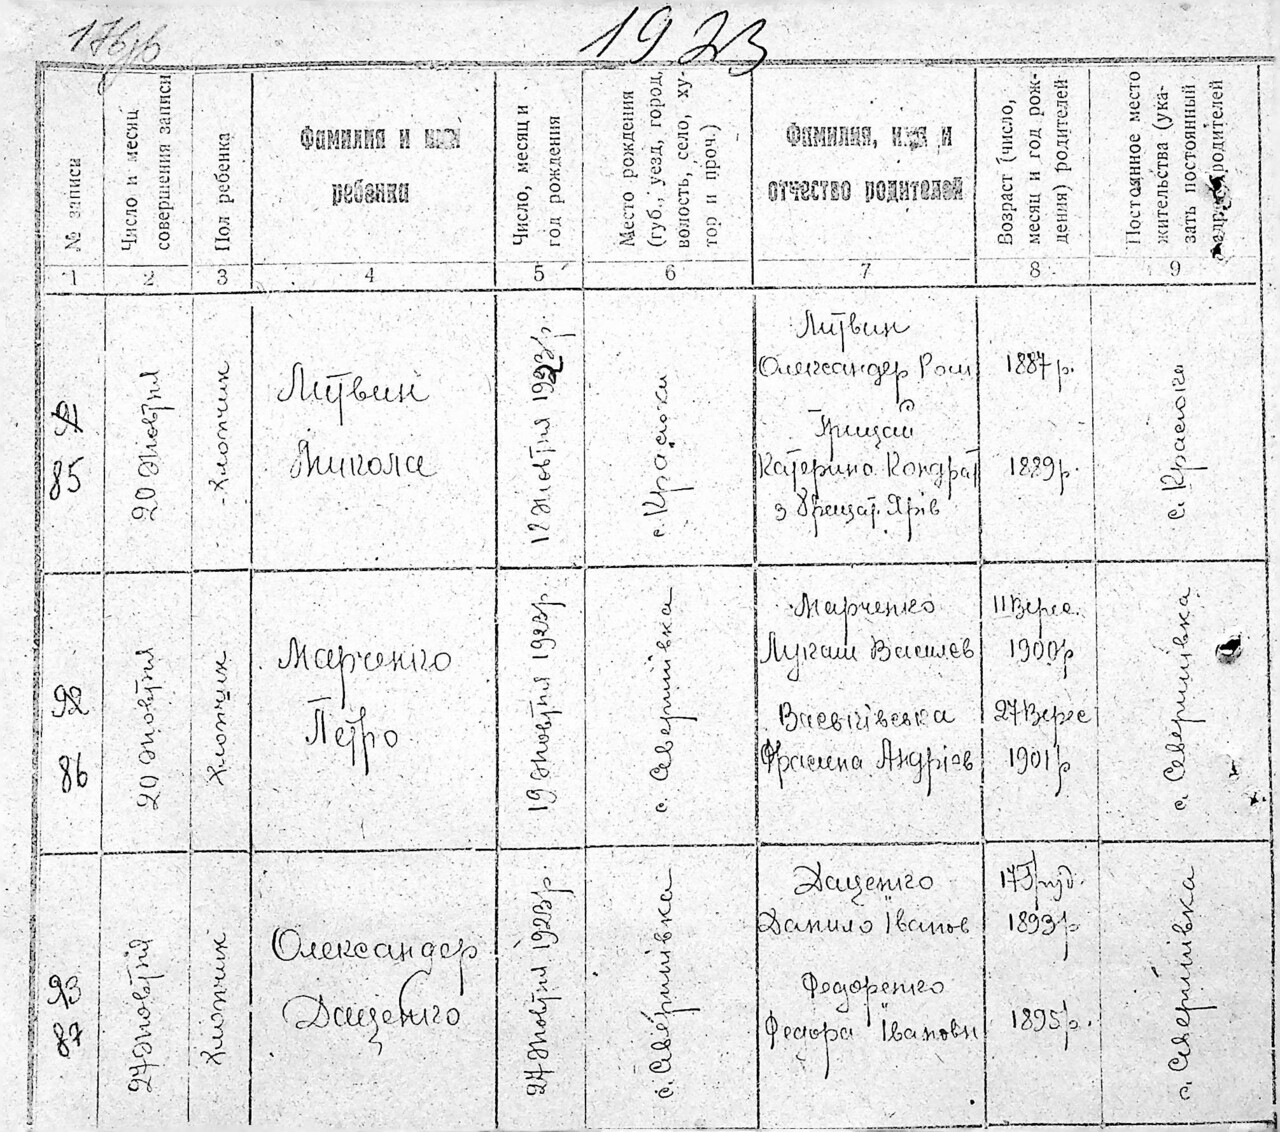 1923
№ записи
Число и месяц
совершения записи
Пол ребенка
Фамилия и имя
ребенка
Число, месяц и
год рождения
Место рождения
(губ., уезд, город,
волость, село, ху-
тор и проч.)
Фамилия, имя и
отчество родителей
Возраст (число,
месяц и год рож-
дения) родителей
Постоянное место
жительства (ука-
зать постоянный
адрес родителей
1 2 3 4 5 6 7 8 9
91
85
20 жовтня
хлопчик
Литвин
Микола
12 жовтня 1923 р.
с. Краснки
Литвин
Олександер Ром
Грицай
Катерина Кондрат
з Грицат. Ярів
1887 р.
1889 р.
с. Красюки
92
86
20 жовтня
хлопчик
Марченко
Петро
19 жовтня 1923 р
с. Северинівка
Марченко
Лукаш Василев
Васьківська
Фрасина Андріев
11 Верес.
1900 р
27 Верес
1901 р
с. Северинівка
93
87
27 жовтня
хлопчик
Олександер
Даценко
27 жовтня 1923 р.
с. Северинівка
Даценко
Данило Іванов
Федоренко
Федора Івановн
17 груд.
1893 р.
1895 р.
с. Северинівка